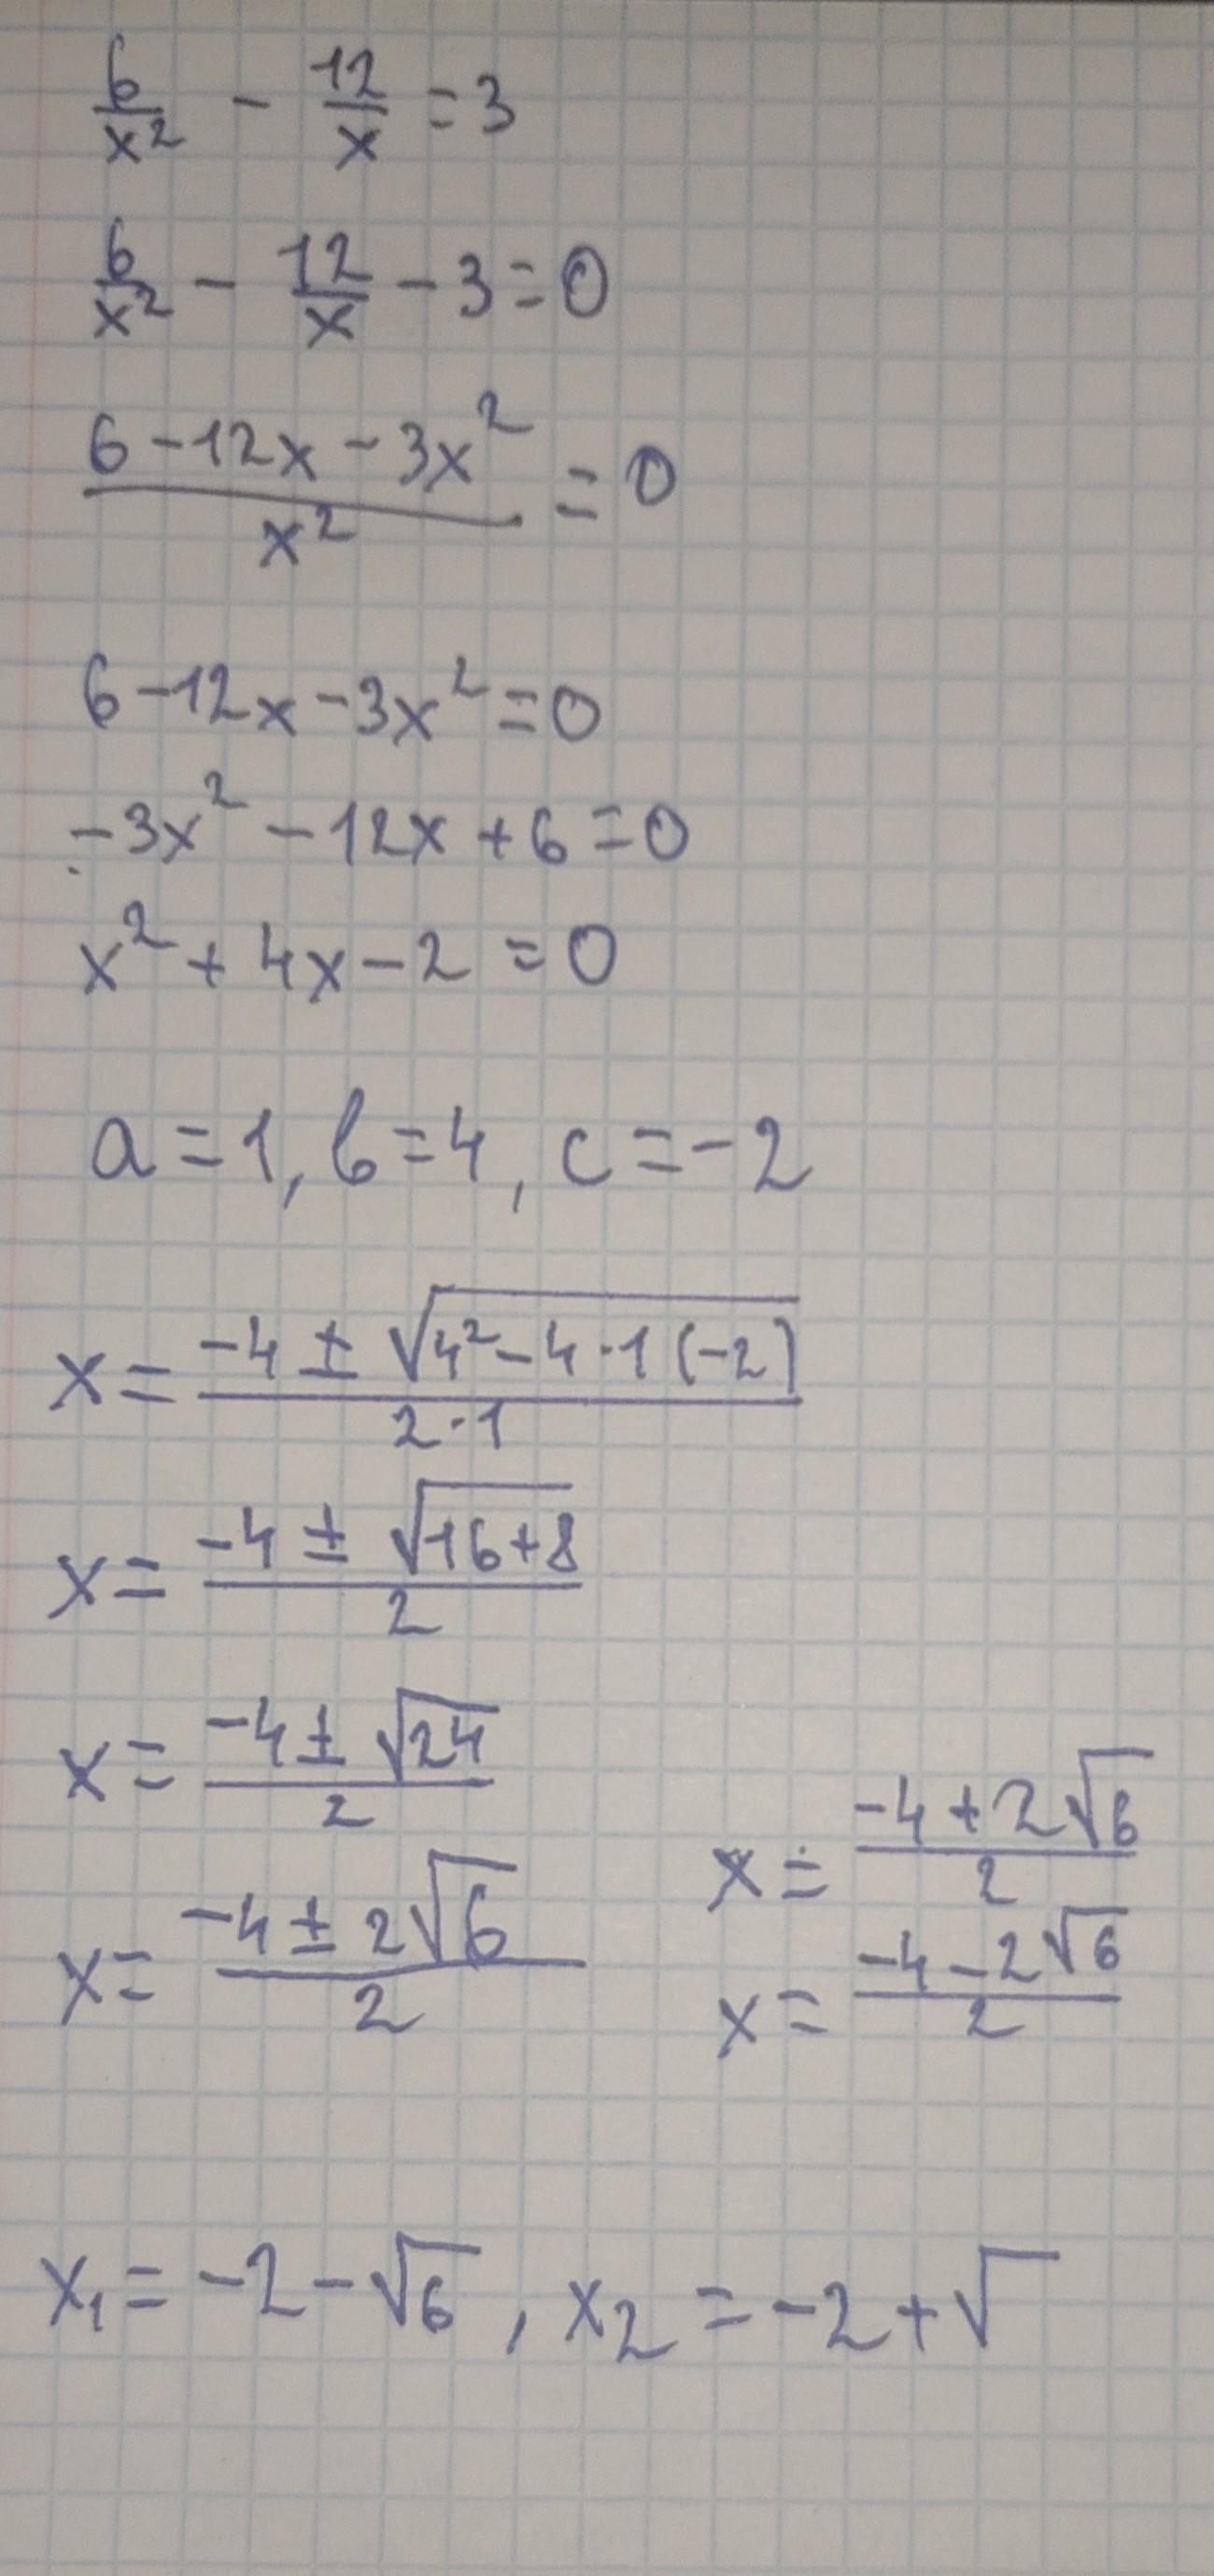 6/x² - 12/x = 3
6/x² - 12/x - 3 = 0
(6 - 12x - 3x²)/x² = 0
6 - 12x - 3x² = 0
-3x² - 12x + 6 = 0
x² + 4x - 2 = 0
a = 1, b = 4, c = -2
x = (-4 ± √(4² - 4 · 1 (-2)))/(2 · 1)
x = (-4 ± √(16 + 8))/2
x = (-4 ± √24)/2
x = (-4 ± 2√6)/2
x = (-4 + 2√6)/2
x = (-4 - 2√6)/2
x₁ = -2 - √6, x₂ = -2 + √